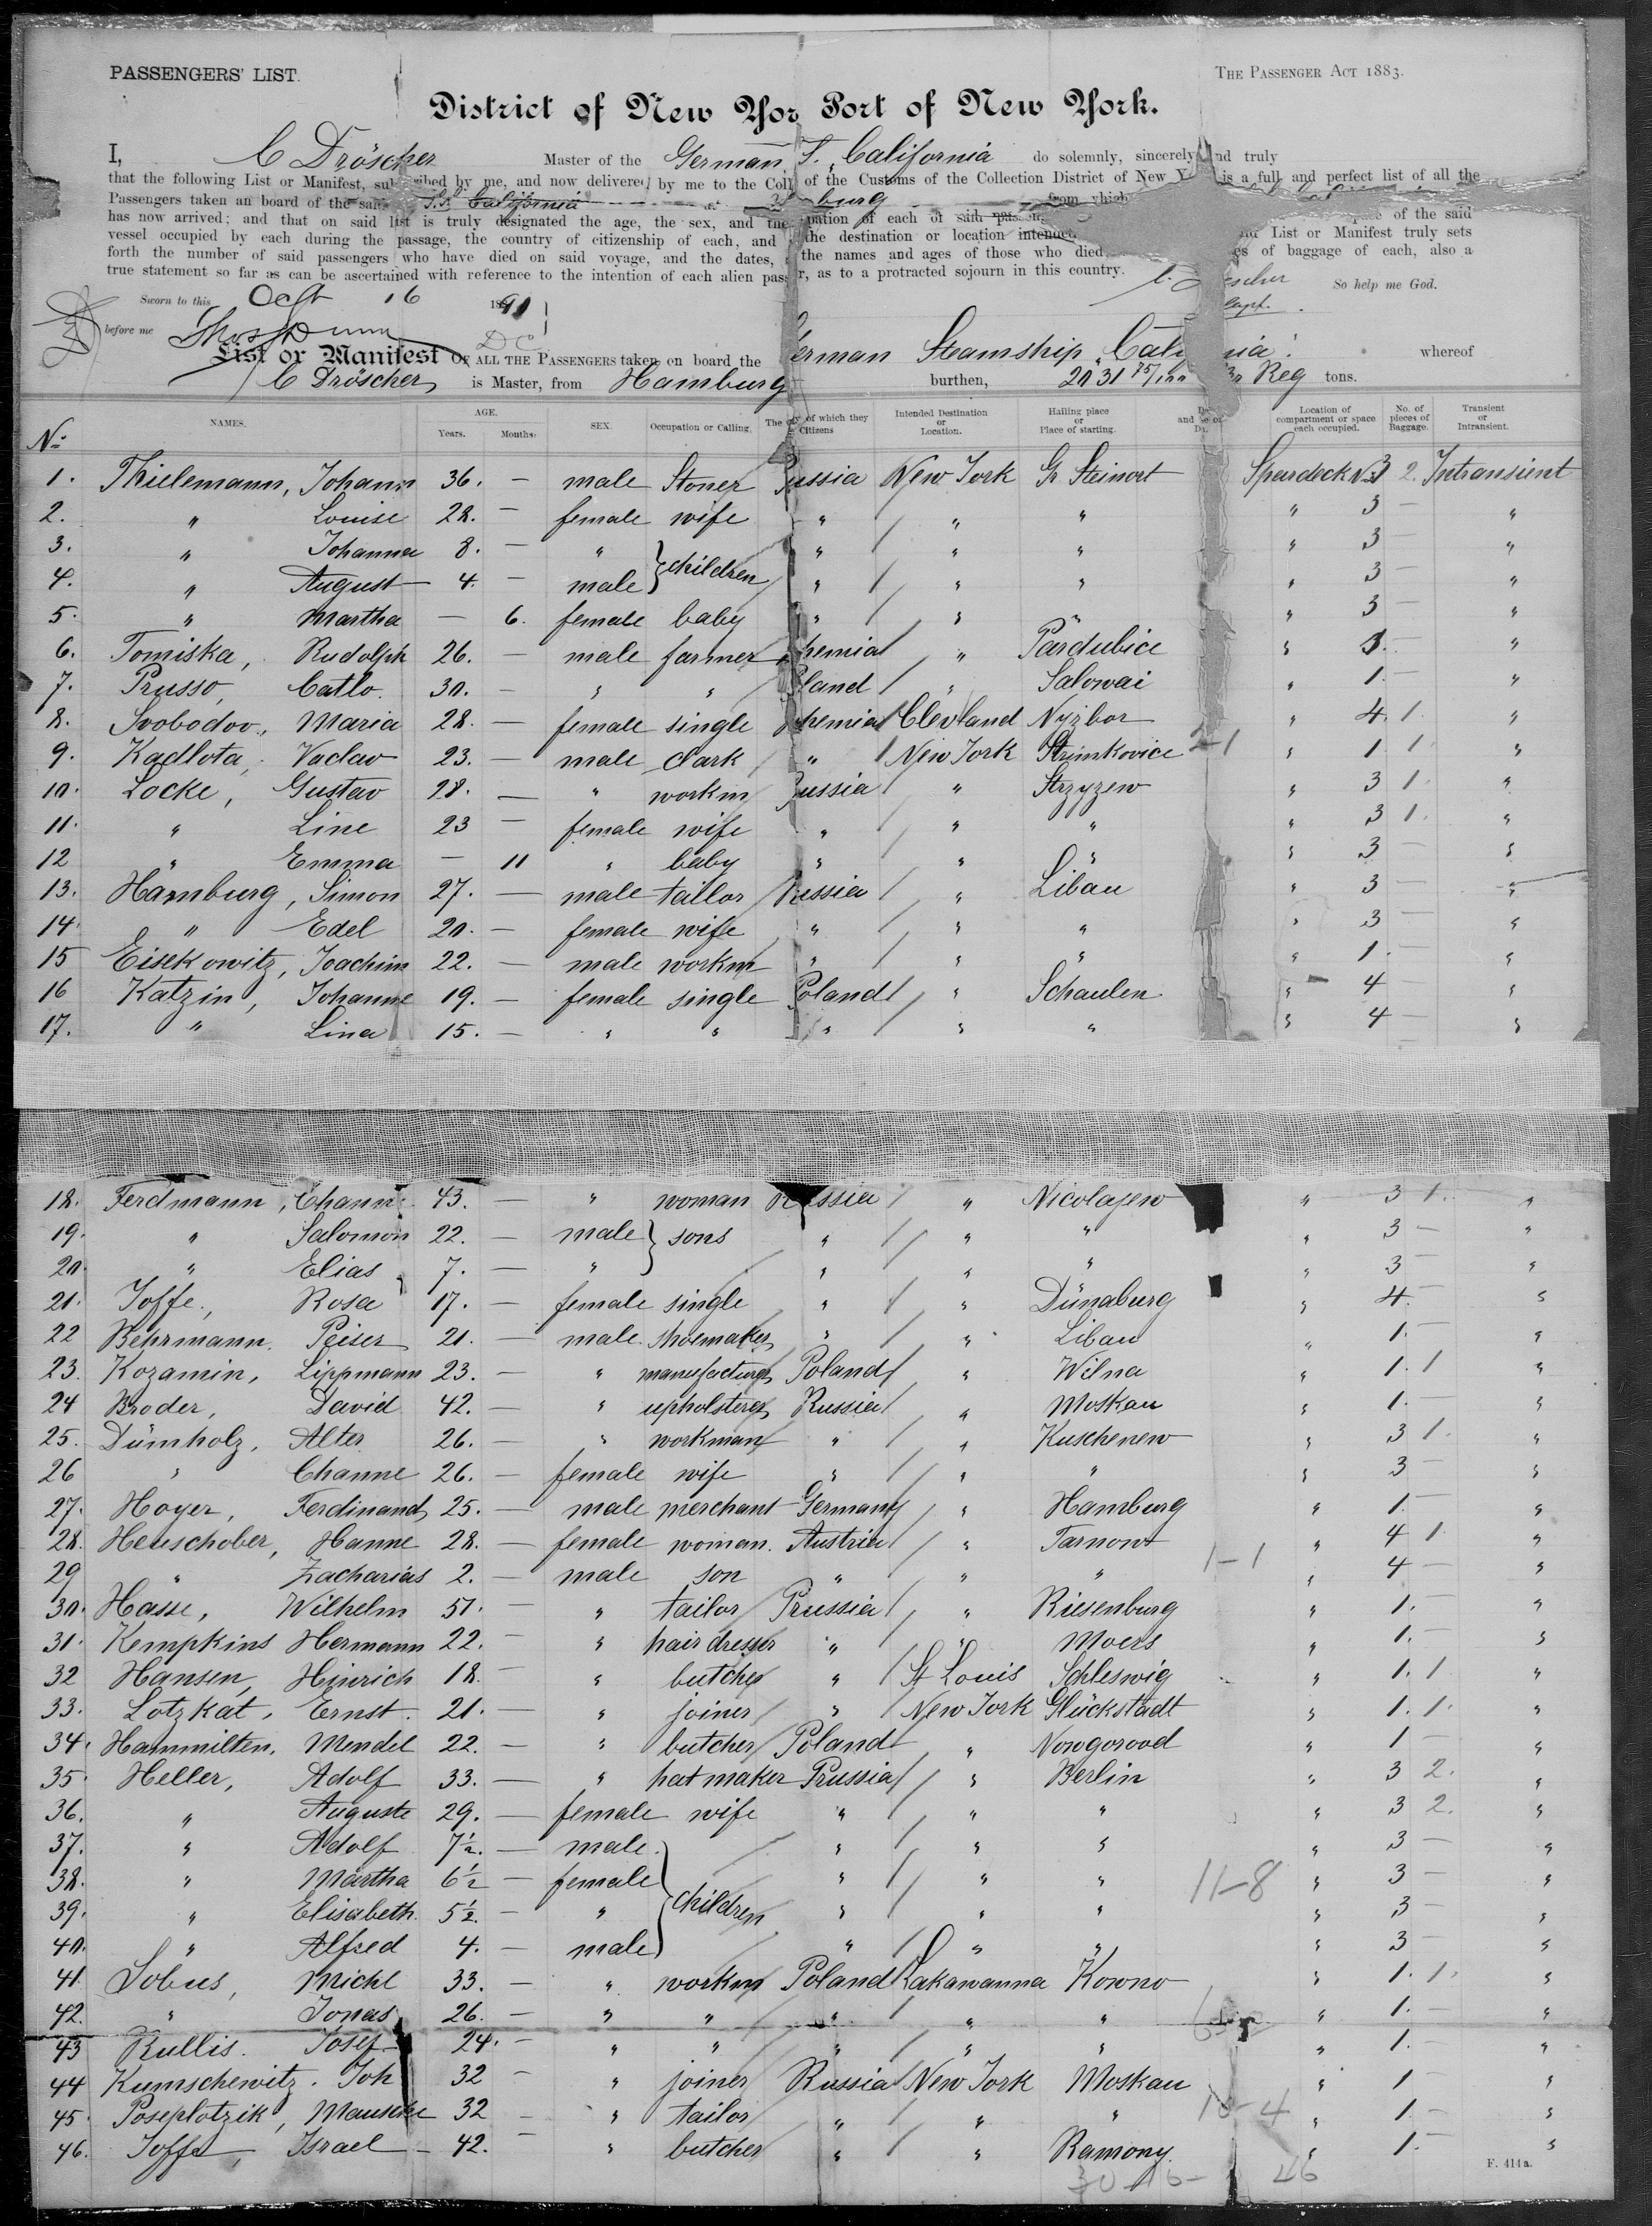 PASSENGERS' LIST.
THE PASSENGER ACT 1883.
District of New Yor Port of New York.
I, C Dröscher Master of the German S. California do solemnly, sincerely and truly
that the following List or Manifest, subscribed by me, and now delivered by me to the Coll of the Customs of the Collection District of New Y is a full and perfect list of all the
Passengers taken on board of the said S.S. California at burg from which
has now arrived; and that on said list is truly designated the age, the sex, and the pation of each of said of the said
vessel occupied by each during the passage, the country of citizenship of each, and the destination or location intended List or Manifest truly sets
forth the number of said passengers who have died on said voyage, and the dates, the names and ages of those who died of baggage of each, also a
true statement so far as can be ascertained with reference to the intention of each alien pass r, as to a protracted sojourn in this country.
So help me God.
Sworn to this Oct 16 18
before me
Capt.
List or Manifest OF ALL THE PASSENGERS taken on board the erman Steamship Cali nia whereof
C Dröscher is Master, from Hamburg burthen, 2031 75/100 Reg tons.
No. NAMES. AGE. Years. Months. SEX. Occupation or Calling. The of which they Citizens Intended Destination or Location. Hailing place or Place of starting. Location of compartment or space each occupied. No. of pieces of Baggage. Transient or Intransient.
1. Thielemann, Johann 36. — male Stoner ussia New York Gr Steinort Spardeck No 3 2. Intransient
2. " Louise 28. — female wife " " " " 3 — "
3. " Johanna 8. — " } children " " " " 3 — "
4. " August 4. — male " " " " 3 — "
5. " Martha — 6. female baby " " " " 3 — "
6. Tomiska, Rudolph 26. — male farmer hemia " Pardubice " 3. — "
7. Prusso, Catlo 30. — " " land " Salowai " 1. — "
8. Svobodov., Maria 28. — female single hemia Clevland Nyzbor " 4. 1. "
9. Kadlota, Vaclav 23. — male clark " New York Strimkovice 2-1 " 1 1. "
10. Locke, Gustav 28. — " workm ussia " Strzyzew " 3 1. "
11. " Line 23 — female wife " " " " 3 1. "
12 " Emma — 11 " baby " " " " 3 — "
13. Hamburg, Simon 27. — male taillor Russia " Libau " 3 — "
14. " Edel 20. — female wife " " " " 3 — "
15 Eisekowitz, Joachim 22. — male workm " " " " 1. — "
16 Katzin, Johanne 19. — female single Poland " Schaulen " 4 — "
17. " Lina 15. — " " " " " " 4 — "
18. Ferdmann, Chann 43. — " woman Russia " Nicolajew " 3 1. "
19. " Salomon 22. — male } sons " " " " 3 — "
20. " Elias 7. — " " " " " 3 — "
21. Joffe., Rosa 17. — female single " " Dünaburg " 4. — "
22 Behrmann. Peiser 21. — male shoemaker " " Libau " 1. — "
23. Kozamin, Lippmann 23. — " manufacturer Poland " Wilna " 1. 1 "
24 Broder, David 42. — " upholsterer Russia " Moskau " 1. — "
25. Dümholz, Alter 26. — " workman " " Kuschenew " 3 1. "
26 " Channe 26. — female wife " " " " 3 — "
27. Hoyer, Ferdinand 25. — male merchant Germany " Hamburg " 1. — "
28. Heuschober, Hanne 28. — female woman. Austria " Tarnow " 4 1. "
29 " Zacharias 2. — male son " " " 1-1 " 4 — "
30. Hasse, Wilhelm 51. — " tailor Prussia " Riesenburg " 1. — "
31. Kempkins Hermann 22. — " hair dresser " " Moers " 1. — "
32 Hansen, Hinrich 18. — " butcher " St Louis Schleswig " 1. 1 "
33. Lotzkat, Ernst. 21. — " joiner " New York Glückstadt " 1. 1. "
34. Hammilten, Mendel 22. — " butcher Poland " Nowgorood " 1 — "
35. Heller, Adolf 33. — " hat maker Prussia " Berlin " 3 2. "
36. " Auguste 29. — female wife " " " " 3 2. "
37. " Adolf 7½. — male } " " " " 3 — "
38. " Martha 6½ — female " " " 11-8 " 3 — "
39. " Elisabeth. 5½. — " children " " " " 3 — "
40. " Alfred 4. — male " " " " 3 — "
41. Sobus, Michl 33. — " workm Poland Lakawanna Kowno " 1. 1. "
42. " Jonas 26. — " " " " " " 1. — "
43 Rullis. Josef 24. — " " " " " " 1. — "
44 Kumschewitz. Joh 32 — " joiner Russia New York Moskau " 1 — "
45. Poseplotzik, Mausche 32 — " tailor " " " 10-4 " 1. — "
46. Joffe, Israel 42. — " butcher " " Ramony. " 1. — "
46
F. 414a.